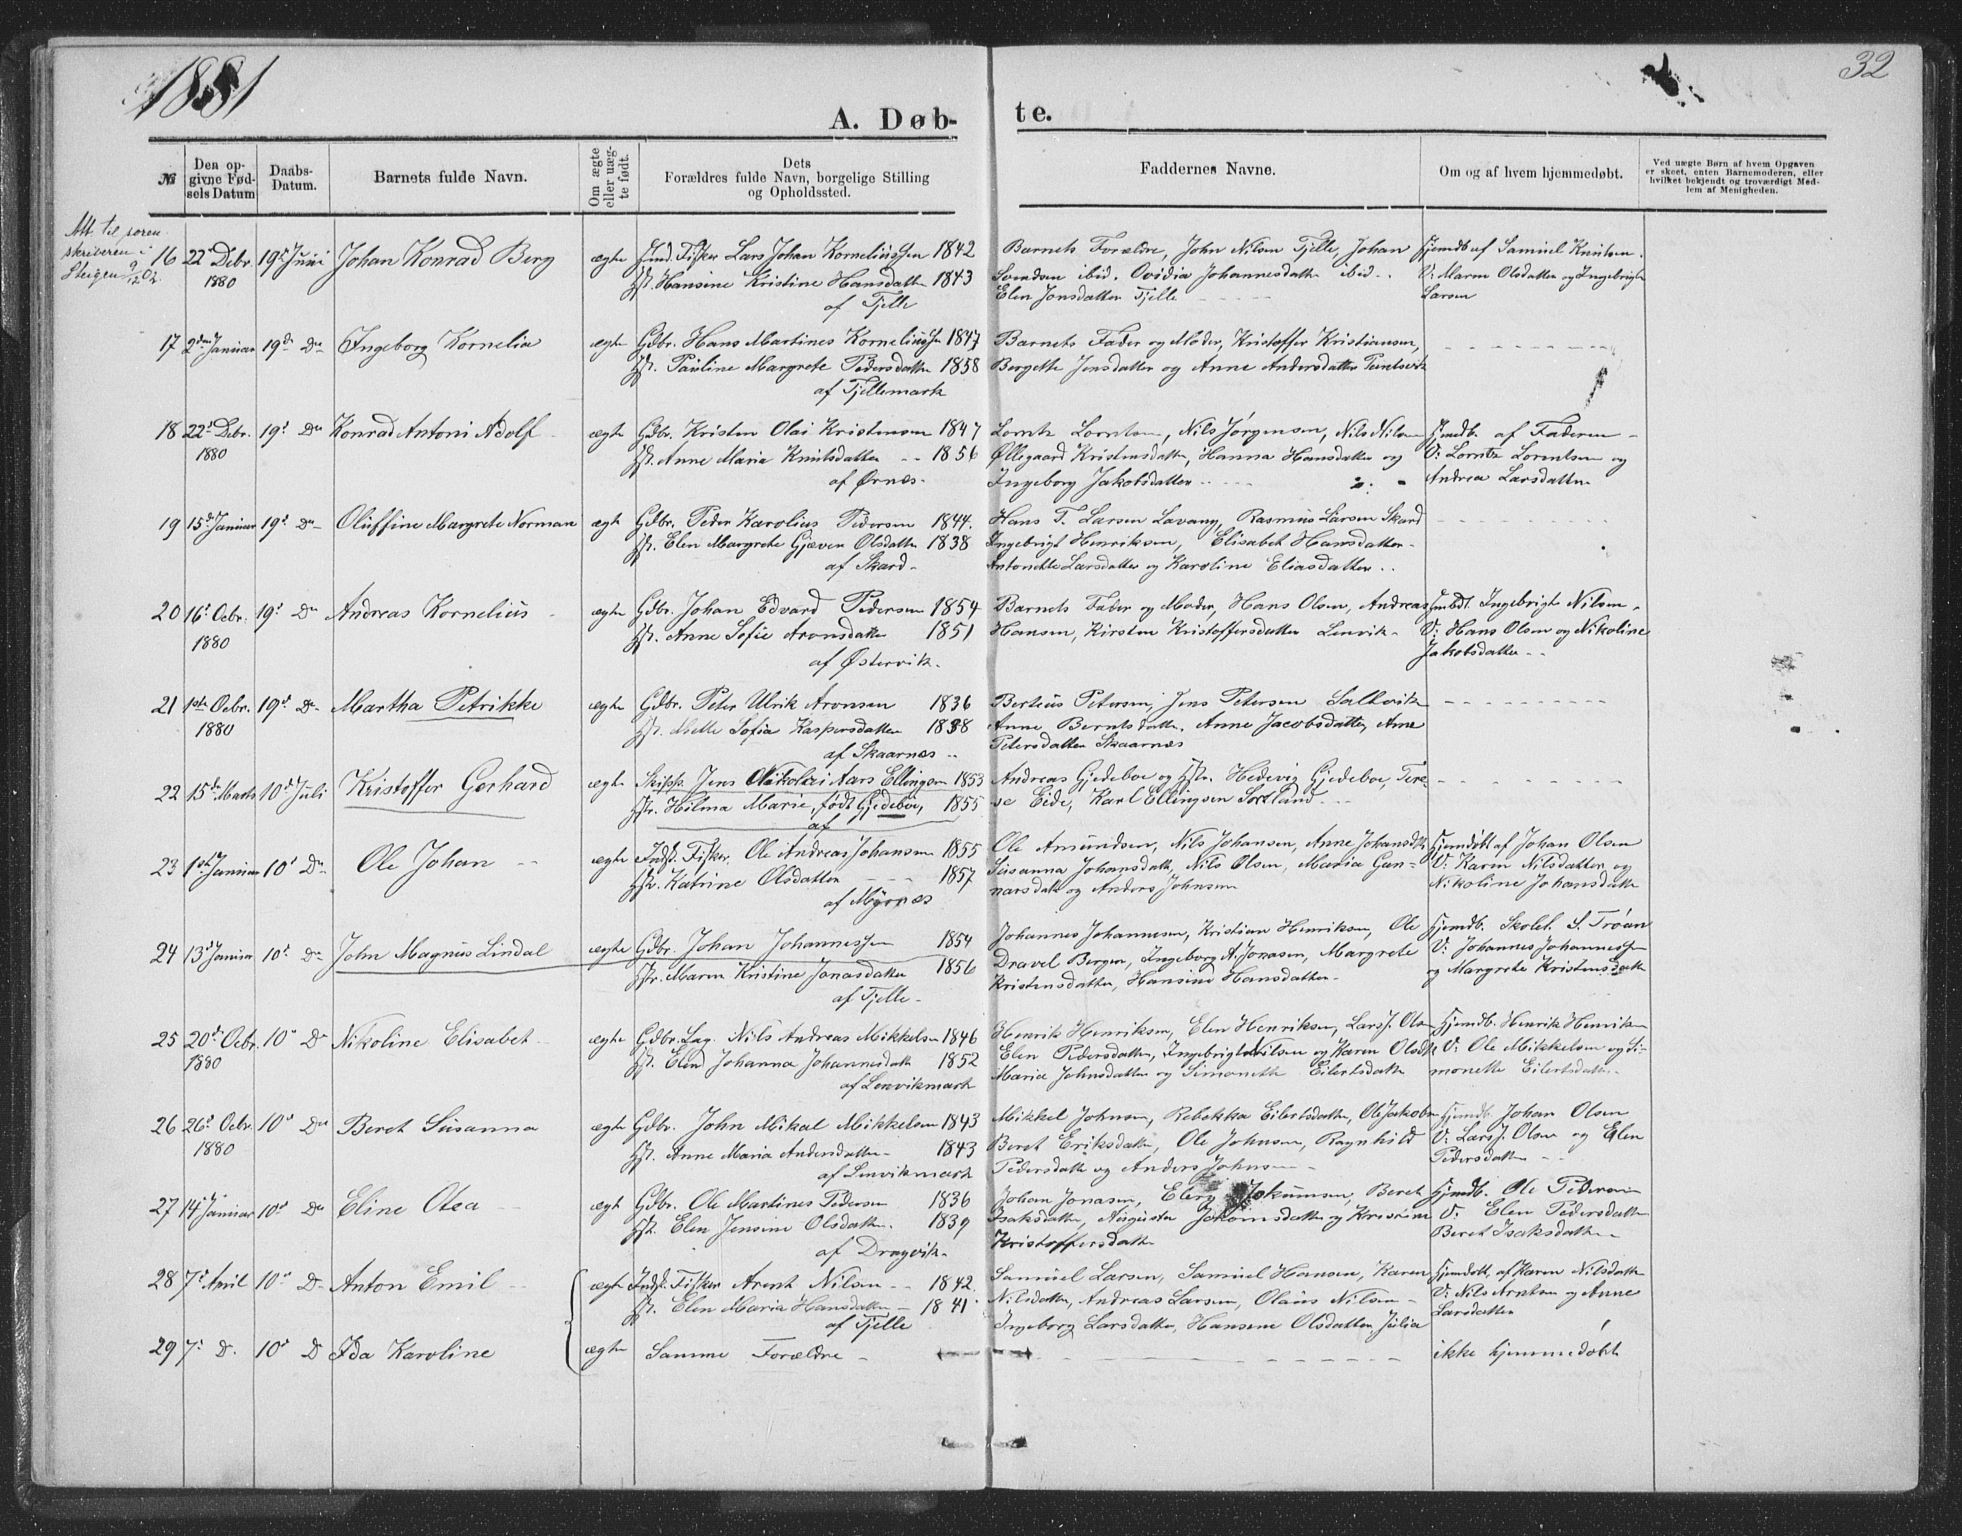 1881
32
A. Døb-
te.
№
Den op-
givne Fød-
sels Datum
Daabs-
Datum.
Barnets fulde Navn.
Om ægte
eller uæg-
te født.
Dets
Forældres fulde Navn, borgelige Stilling
og Opholdssted.
Faddernes Navne.
Om og af hvem hjemmedøbt.
Ved uægte Børn af hvem Opgaven
er skeet, enten Barnemoderen, eller
hvilket bekjendt og troværdigt Med-
lem af Menigheden.
Att til soren
skriveren i
Steigen
16 22 Debr. 19 Juni Johan Konrad Berg ægte Ind. Fisker Lars Johan Korneliussen 1842 Barnets Forældre, John Nilsen Tjelle, Johan Hjemdb af Samuel Knutsen.
1880 Hansine Kristine Hansdatter 1843 Svendsen ibid. Ovidia Johannesdatter ibid. V: Maren Olsdatter og Ingebrigt
af Tjelle Elen Jonsdatter Tjelle Larsen
17 2den Januar 19d Do Ingeborg Kornelia ægte Gdbr. Hans Martines Korneliussen 1847 Barnets Fader og Moder, Kristoffer Kristiansen,
Pauline Margrete Pedersdatter 1858 Bergette Jensdatter og Anne Andersdatter
af Tjellemark
18 22d Debr. 19d Do Konrad Antoni Adolf ægte Gdbr. Kristen Olai Kristensen 1847 Lorntz Lorntsen, Nils Jørgensen, Nils Nilsen Hjemdb. af Faderen
1880 Anne Maria Knutsdatter 1856 Øllegaard Kristensdatter, Hanna Hansdatter og V: Lorntz Lorentsen og
af Ørnes Ingeborg Jakobsdatter Andrea Larsdatter
19 15d Januar 19d Do Oluffine Margrete Norman ægte Gdbr. Peder Karolius Pedersen 1844. Hans T. Larsen Lavang, Rasmus Larsen Skard
Elen Margrete Gjæver Olsdatter 1838 Ingebrigt Henriksen, Elisabet Hansdatter
af Skard Antonette Larsdatter og Karoline Eliasdatter
20 16d Ocbr. 19d Do Andreas Kornelius ægte Gdbr. Johan Edvard Pedersen 1854 Barnets Fader og Moder, Hans Olsen, Andreas Hmdbt. Ingebrigt Nilsen
1880 Anne Sofie Aronsdatter 1851 Hansen, Kirsten Kristoffersdatter Lenvik V: Hans Olsen og Nikoline
af Østervik Jakobsdatter
21 1ste Ocbr. 19d Do Martha Petrikke ægte Gdbr. Peter Ulrik Aronsen 1836 Berteus Petersen, Jens Petersen Saltvik
1880 Mette Sofia Kaspersdatter 1838 Anne Berntsdatter, Anne Jacobsdatter, Ane
af Skaarnæs Petersdatter Skaarnæs
22 15d Marts 10d Juli Kristoffer Gerhard ægte Skipp. Jens Nikolai Aars Ellingsen 1853 Andreas Gjedeboe og Hedevig Gjedeboe, There-
Hilma Marie, født Gjedeboe, 1855 se Eide, Karl Ellingsen Sortland
af
23 1ste Januar 10d Do Ole Johan ægte Indst. Fisker Ole Andreas Johansen 1855 Ole Amundsen, Nils Johansen, Anne Johansdtr Hjemdøbt af Johan Olsen
Katrine Olsdatter 1857 Susanna Johansdatter, Nils Olsen, Maria Gun- V: Karen Nilsdatter og
af Myrnæs narsdatter og Anders Johnsen Nikoline Johansdatter
24 13d Januar 10d Do John Magnus Lindal ægte Gdbr. Johan Johannessen 1854 Johannes Johannesen, Kristian Henriksen, Ole Hjemdb. Skolel. S. Trøan
Maren Kristine Jonasdatter 1856 Dravel Bergen, Ingeborg A. Jonasen, Margrete V: Johannes Johannessen
af Tjelle Kristensdatter, Hansine Hansdatter og Margrete Kristensdatter
25 20d Ocbr. 10d Do Nikoline Elisabet ægte Gdbr. Lag. Nils Andreas Mikkelsen 1846 Henrik Henriksen, Elen Henriksen, Lars J. Olsen Hjemdb. Henrik Henriksen
1880 Elen Johanna Johannesdatter 1852 Elen Pedersdatter, Ingebrigt Nilsen og Karen Olsdtr V: Ole Mikkelsen og Si-
af Lenvikmark Maria Johnsdatter og Simonette Eilertsdatter monette Eilertsdatter
26 26d Ocbr. 10d Do Beret Susanna ægte Gdbr. John Mikal Mikkelsen 1843 Mikkel Johnsen, Rebekka Eilertsdatter, Ole Jakobsen Hjemdb. Johan Olsen
1880 Anne Maria Andersdatter 1843 Beret Eriksdatter, Ole Johnsen, Ragnhild V: Lars J. Olsen og Elen
af Lenvikmark Pedersdatter og Anders Johnsen Pedersdatter
27 14d Januar 10d Do Eline Olea ægte Gdbr. Ole Martines Pedersen 1836 Johan Jonasen, Beret Hjemdb. Ole Pedersen
Elen Jensine Olsdatter 1839 Isaksdatter, Augusta og Kristine V: Elen Pedersdatter
af Dragvik Kristoffersdatter Beret Isaksdatter
28 7d April 10d Do Anton Emil ægte Indst. Fisker Arent Nilsen 1842 Samuel Larsen, Samuel Hansen, Karen Hjemdøbt af Karen Nilsdatter
Elen Maria Hansdatter 1841 Nilsdatter, Andreas Larsen, Olaus Nilsen V: Nils Arntsen og Anne
af Tjelle Ingeborg Larsdatter, Hansine Olsdatter, Julia Larsdatter
29 7d D. 10d D Ida Karoline ægte Samme Forældre ikke hjemmedøbt